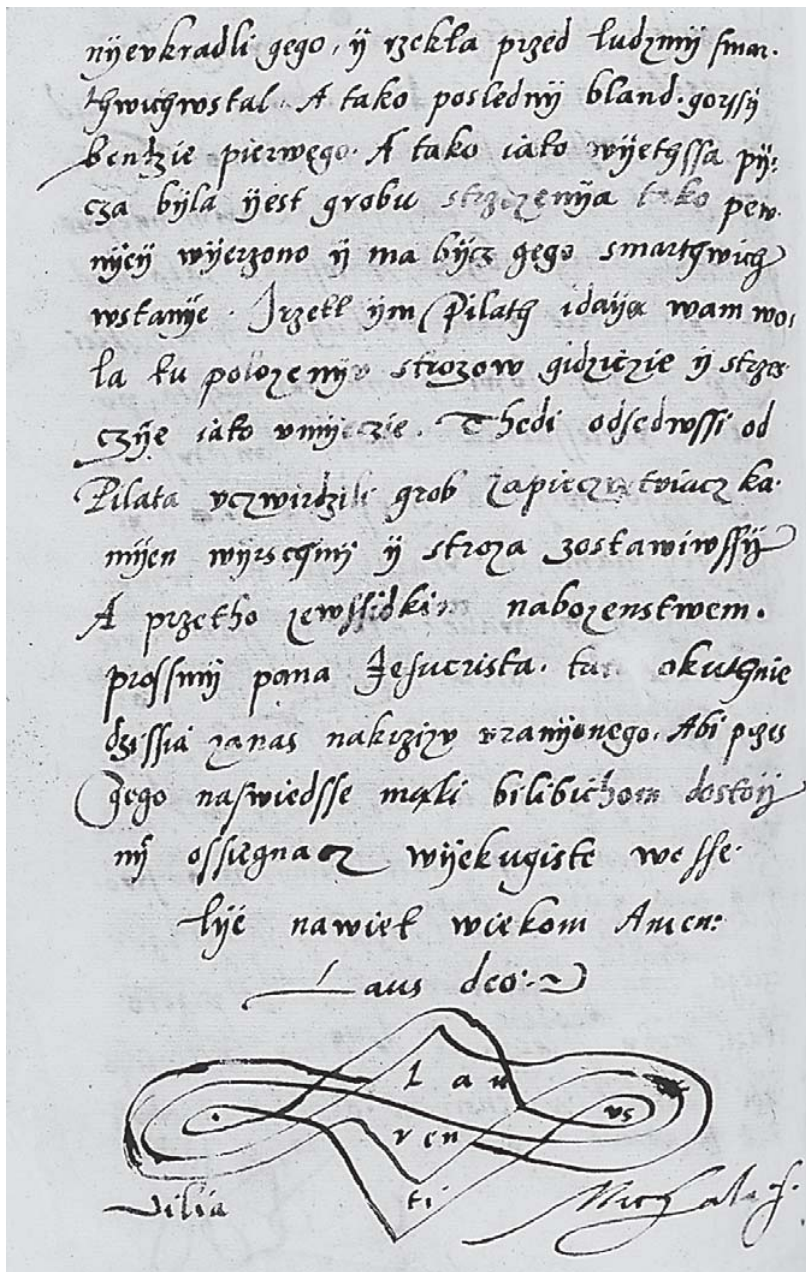 nÿevkradli gego, ÿ rzekła przed ludzmÿ smar.
thwichwstal. A tako poslednÿ bland. gorssÿ
bendzie pierwego. A tako iako wÿethssa pÿ,
cza bÿla ÿest grobu strzezenÿa tako pew.
nÿeÿ wÿerzono ÿ ma bÿcz gego smarthwich
wstanÿe. Irzekł ÿm Pilath idaÿa wam wo,
la ku polozenÿv strozow gidziczie ÿ strzes
czÿe iako vmÿeczie. Thedi odsedwssi od
Pilata vczwirdzili grob zapieczetwiacz ka.
mÿen wÿrschnÿ ÿ stroza zostawiwssÿ
A przetho zewssidkim nabozenstwem.
prossmÿ pana Jesucrista. tak okuthnie
dzissia zanas nakrzizv vramÿonego. Abi przes
gego naswiedsse mąki bilibichom dostoÿ
nÿ ossiegnacz wÿekugiste wesse.
lÿe nawiek wiekom Amen:
Laus deo.
Lau
vs
ren
Vilia
ti
Michalis.